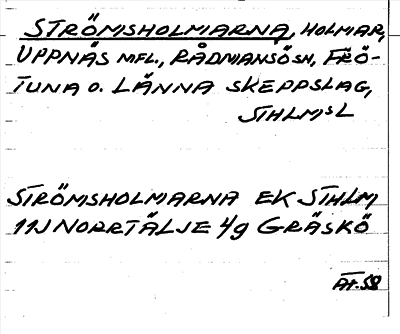 STRÖMSHOLMARNA, HOLMAR,
UPPNÄS MFL., RÅDMANSÖSN, FRÖ-
TUNA O. LÄNNA SKEPPSLAG,
STHLMSL
STRÖMSHOLMARNA EK STHLM
11J NORRTÄLJE 4g GRÄSKÖ
ÄT.58